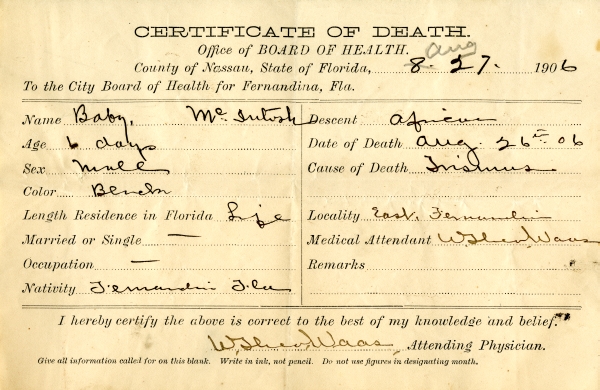 CERTIFICATE OF DEATH.
Office of BOARD OF HEALTH.
Aug
County of Nassau, State of Florida, 8. 27. 1906
To the City Board of Health for Fernandina, Fla.
Name Baby, McIntosh
Age 6 days
Sex Male
Color Black
Length Residence in Florida Life
Married or Single —
Occupation —
Nativity Fernandin Fla
Descent African
Date of Death Aug. 26th 06
Cause of Death Trismus
Locality East. Fernandin
Medical Attendant W. Theo Waas
Remarks
I hereby certify the above is correct to the best of my knowledge and belief.
W. Theo Waas, Attending Physician.
Give all information called for on this blank. Write in ink, not pencil. Do not use figures in designating month.